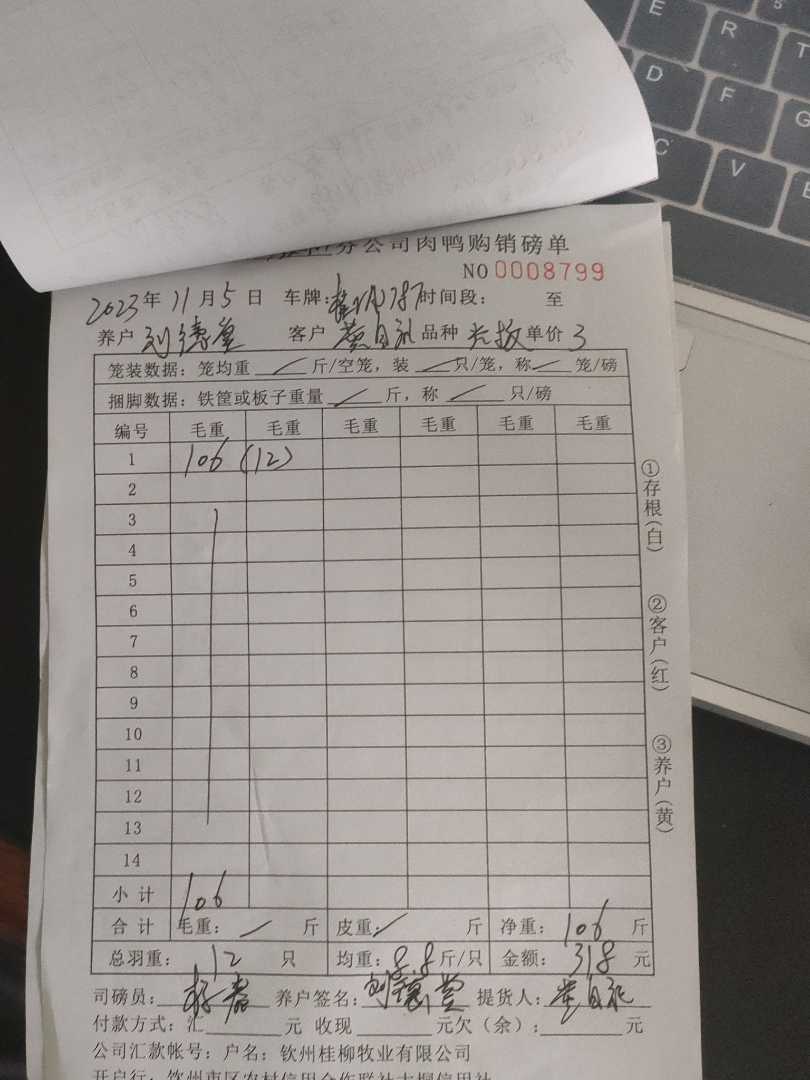 分公司肉鸭购销磅单
NO 0008799
2023年 11月 5日 车牌: 787 时间段: 至
养户 刘德 客户 黄自礼 品种 单价 3
笼装数据: 笼均重 / 斤/空笼, 装 / 只/笼, 称 / 笼/磅
捆脚数据: 铁筐或板子重量 / 斤, 称 / 只/磅
编号 毛重 毛重 毛重 毛重 毛重 毛重
1 106 (12)
2
3
4
5
6
7
8
9
10
11
12
13
14
小计 106
合计 毛重: / 斤 皮重: / 斤 净重: 106 斤
总羽重: 12 只 均重: 8.8 斤/只 金额: 318 元
司磅员: 养户签名: 提货人: 黄自礼
付款方式: 汇 元 收现 元欠(余): 元
公司汇款帐号: 户名: 钦州桂柳牧业有限公司
开户行: 钦州市区农村信用合作联社大垌信用社
①存根(白)
②客户(红)
③养户(黄)
E R T
D F G
C V